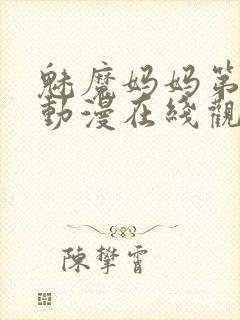 魅魔妈妈第
動漫在綫觀
陳攀霄